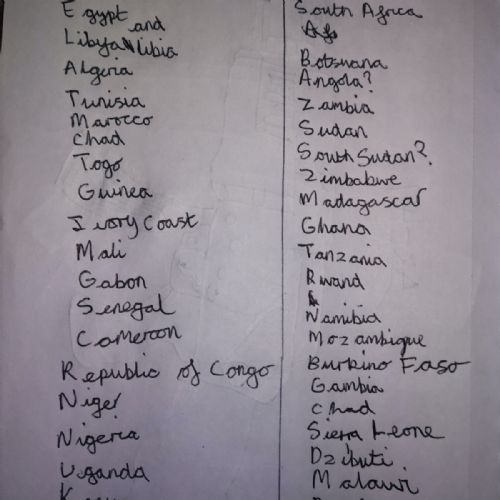 Egypt
and
Libya
Algeria
Tunisia
Marocco
Chad
Togo
Guinea
Ivory Coast
Mali
Gabon
Senegal
Cameroon
Republic of Congo
Niger
Nigeria
Uganda
South Africa
Botswana
Angola?
Zambia
Sudan
South Sudan?
Zimbabwe
Madagascar
Ghana
Tanzania
Rwand
Namibia
Mozambique
Burkino Faso
Gambia
Chad
Sierra Leone
Dzibuti
Malawi